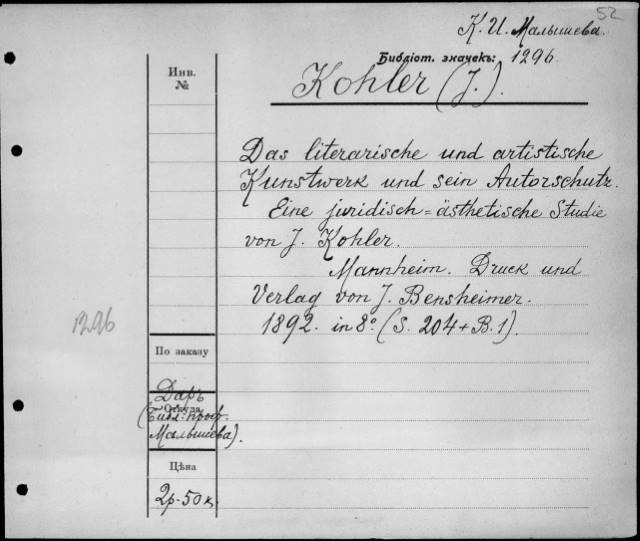 52
К. И. Малышева.
Библіот. значекъ: 1296.
Инв.
№
Kohler (J.).
Das literarische und artistische
Kunstwerk und sein Autorschutz.
Eine juridisch=ästhetische Studie
von J. Kohler.
Mannheim. Druck und
Verlag von J. Bensheimer.
1892. in 8º. (S. 204 + B. 1).
1296
По заказу
Даръ
Откуда
(Библ. проф.
Малышева).
Цѣна
2р.-50к.